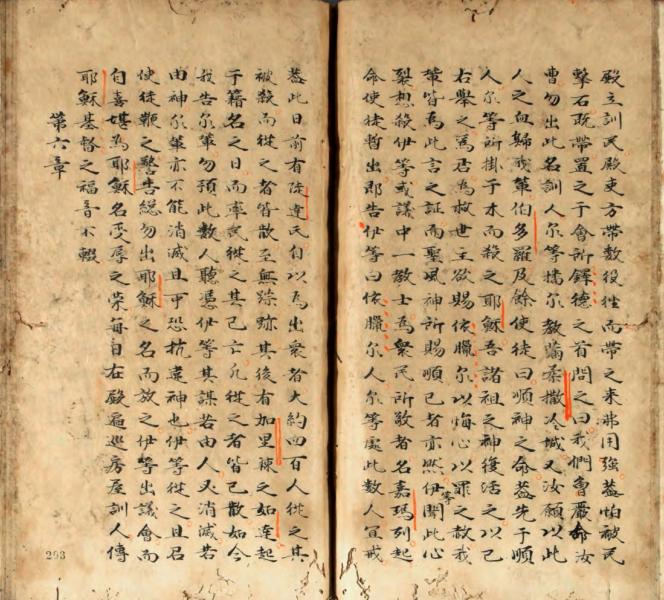 殿立訓民殿吏方帶數役徃而帶之来弗用強葢怕被民
擊石既帶置之于會所鐸德之首問之曰我們曾嚴命汝
曹勿出此名訓人尔等搆尔教薾柔撒冷城又汝願以此
人之血歸我䓁伯多羅及餘使徒曰順神之命葢先于順
人尔等所掛于木而殺之耶穌吾諸祖之神復活之以己
右舉之為君為救世主欲賜依臘尔以悔心以罪之赦我
䓁皆為此言之証而聖風神所賜順己者亦然伊等聞此心
裂想殺伊等或議中一教士為衆民所敬者名嘉瑪列起
命使徒暫出即告伊等曰依臘尔人尔等處此數人宜戒
葢此日前有陡達氏自以為出衆者大約四百人從之其
被殺而從之者皆散至無踪跡其後有加里辣之如達起
于籍名之日而率民從之其已亡凡從之者皆已散如今
我告尔䓁勿預此數人聽憑伊等其謀若由人必消滅若
由神尔䓁亦不能消滅且可恐抗違神也伊等從之且召
使徒鞭之警告總勿出耶穌之名而放之伊等出議會而
自喜堪為耶穌名受辱之榮每日在殿遍巡房屋訓人傳
耶穌基督之福音不輟
第六章
203